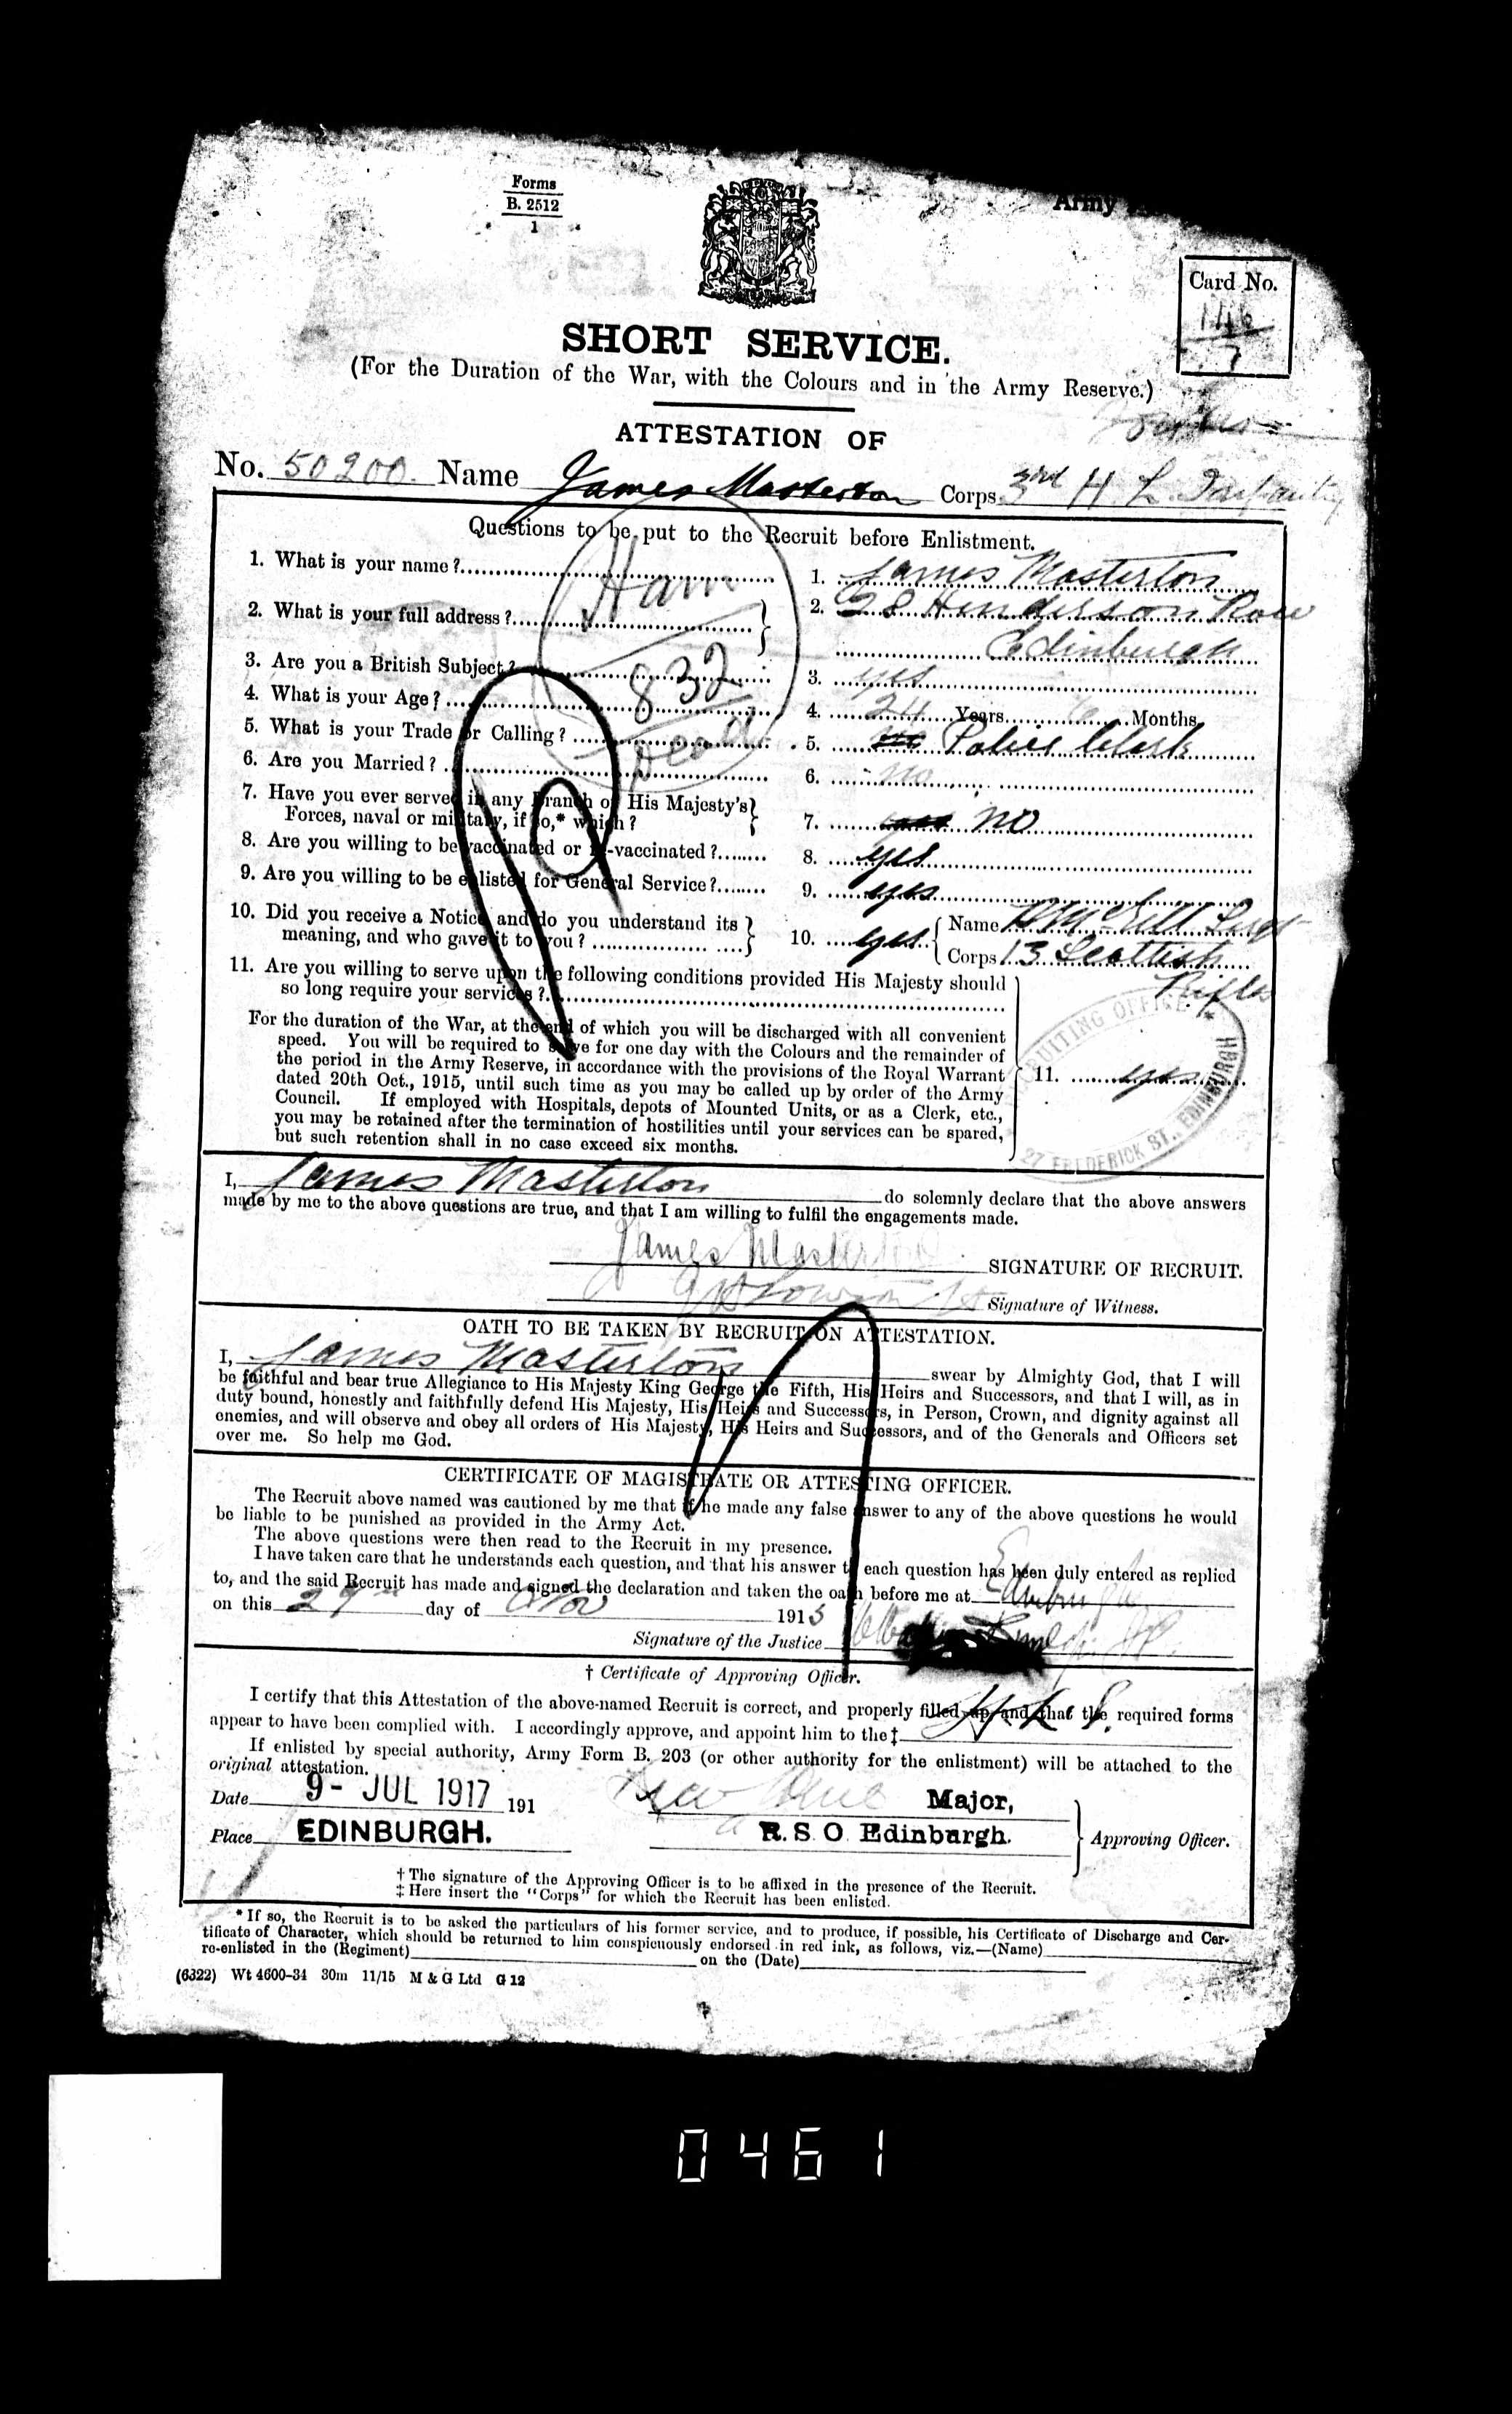 Forms
B. 2512
1
Army
Card No.
146
7
SHORT SERVICE.
(For the Duration of the War, with the Colours and in the Army Reserve.)
ATTESTATION OF
No. 50200. Name James Masterton Corps 3rd H L Infantry
Questions to be put to the Recruit before Enlistment.
1. What is your name?.......... 1. James Masterton
2. What is your full address?.......... 2. 98 Henderson Row
Edinburgh
Ham
832
Dead
3. Are you a British Subject?.......... 3. yes
4. What is your Age?.......... 4. 24 Years 6 Months
5. What is your Trade or Calling?.......... 5. Police Clerk
6. Are you Married?.......... 6. no
7. Have you ever served in any Branch of His Majesty's
Forces, naval or military, if so,* which? 7. no
8. Are you willing to be vaccinated or re-vaccinated?........ 8. yes
9. Are you willing to be enlisted for General Service?....... 9. yes
10. Did you receive a Notice, and do you understand its
meaning, and who gave it to you?.......... 10. yes { Name
Corps 13 Scottish
Rifles
11. Are you willing to serve upon the following conditions provided His Majesty should
so long require your services?..........
For the duration of the War, at the end of which you will be discharged with all convenient
speed. You will be required to serve for one day with the Colours and the remainder of
the period in the Army Reserve, in accordance with the provisions of the Royal Warrant
dated 20th Oct., 1915, until such time as you may be called up by order of the Army
Council. If employed with Hospitals, depots of Mounted Units, or as a Clerk, etc.,
you may be retained after the termination of hostilities until your services can be spared,
but such retention shall in no case exceed six months.
11. yes
RUITING OFFICE * 27 FREDERICK ST., EDINBURGH
I, James Masterton do solemnly declare that the above answers
made by me to the above questions are true, and that I am willing to fulfil the engagements made.
James Masterton SIGNATURE OF RECRUIT.
Signature of Witness.
OATH TO BE TAKEN BY RECRUIT ON ATTESTATION.
I, James Masterton swear by Almighty God, that I will
be faithful and bear true Allegiance to His Majesty King George the Fifth, His Heirs and Successors, and that I will, as in
duty bound, honestly and faithfully defend His Majesty, His Heirs and Successors, in Person, Crown, and dignity against all
enemies, and will observe and obey all orders of His Majesty, His Heirs and Successors, and of the Generals and Officers set
over me. So help me God.
CERTIFICATE OF MAGISTRATE OR ATTESTING OFFICER.
The Recruit above named was cautioned by me that if he made any false answer to any of the above questions he would
be liable to be punished as provided in the Army Act.
The above questions were then read to the Recruit in my presence.
I have taken care that he understands each question, and that his answer to each question has been duly entered as replied
to, and the said Recruit has made and signed the declaration and taken the oath before me at Edinburgh
on this 29th day of Nov 1915
Signature of the Justice
† Certificate of Approving Officer.
I certify that this Attestation of the above-named Recruit is correct, and properly filled up, and that the required forms
appear to have been complied with. I accordingly approve, and appoint him to the‡ H.L.I.
If enlisted by special authority, Army Form B. 203 (or other authority for the enlistment) will be attached to the
original attestation.
Date 9- JUL 1917 191 Major,
Place EDINBURGH. R.S.O. Edinburgh. } Approving Officer.
† The signature of the Approving Officer is to be affixed in the presence of the Recruit.
‡ Here insert the "Corps" for which the Recruit has been enlisted.
* If so, the Recruit is to be asked the particulars of his former service, and to produce, if possible, his Certificate of Discharge and Cer-
tificate of Character, which should be returned to him conspicuously endorsed in red ink, as follows, viz.—(Name)
re-enlisted in the (Regiment) on the (Date)
(6322) Wt 4600-34 30m 11/15 M & G Ltd G 12
0461